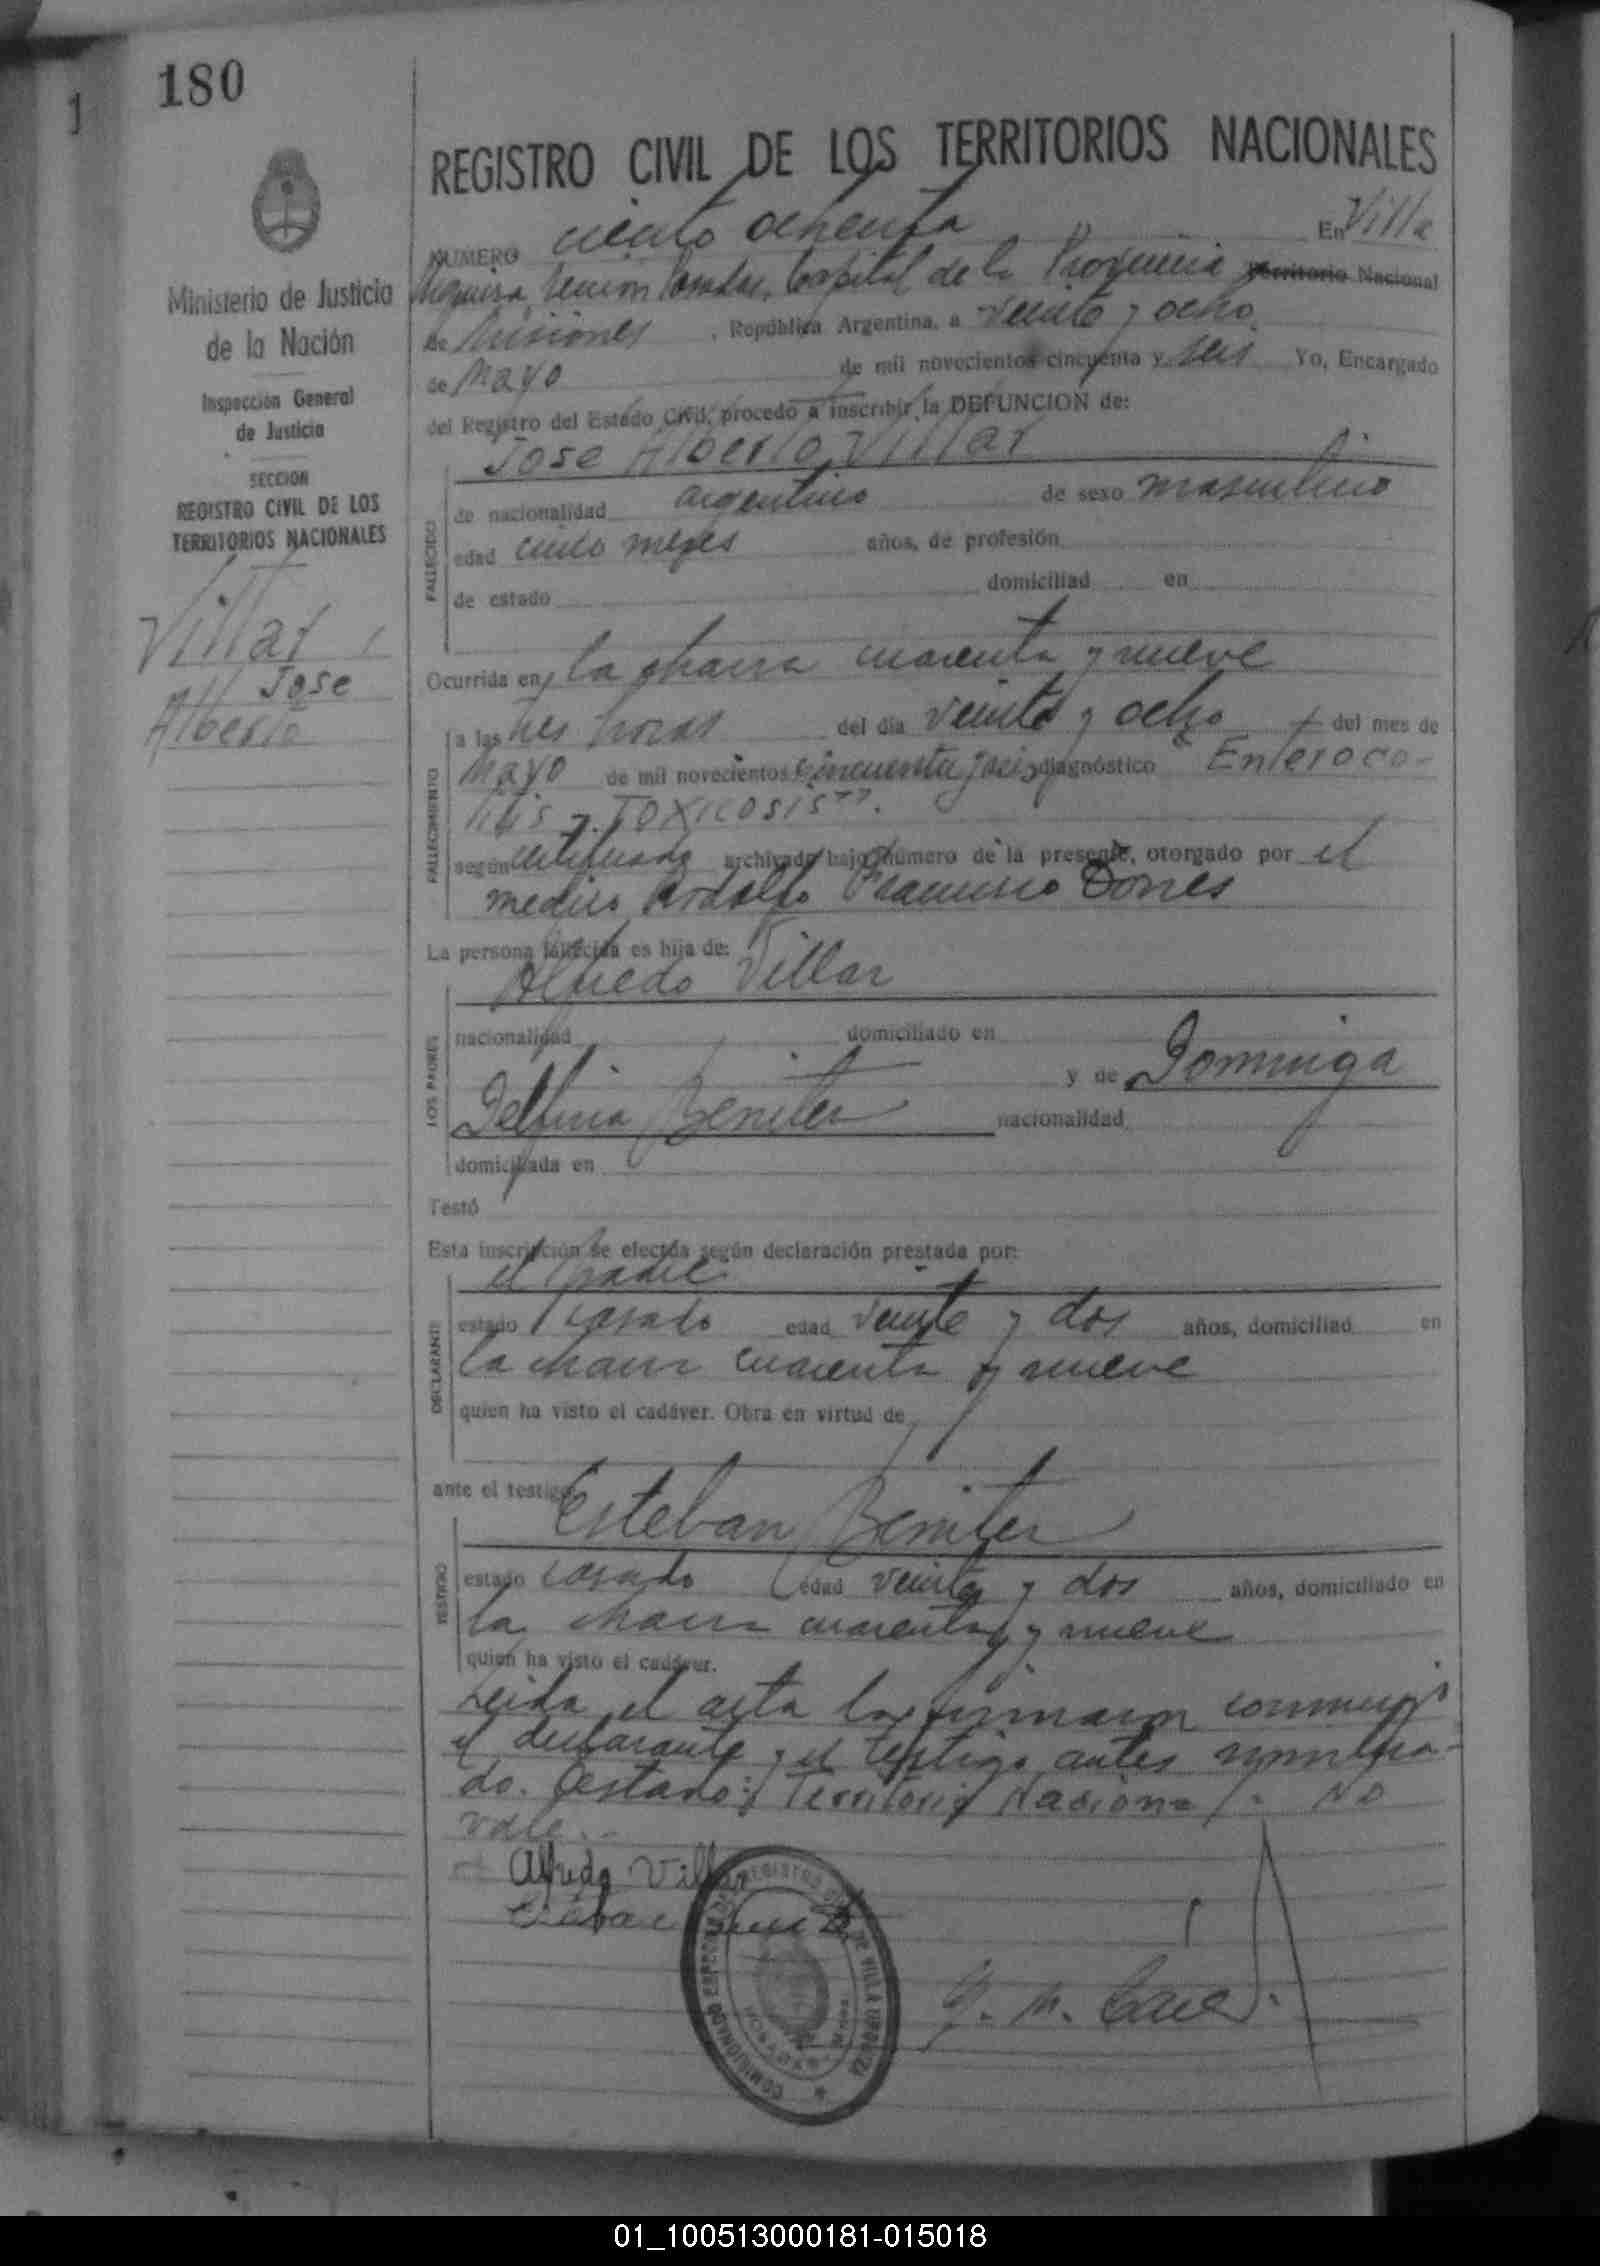 180
REGISTRO CIVIL DE LOS TERRITORIOS NACIONALES
Ministerio de Justicia
de la Nación
Inspección General
de Justicia
SECCION
REGISTRO CIVIL DE LOS
TERRITORIOS NACIONALES
Villar
Jose
Alberto
NUMERO ciento ochenta En Villa
Capital de la Provincia Territorio Nacional
de Misiones, República Argentina, a veinte y ocho
de Mayo de mil novecientos cincuenta y seis Yo, Encargado
del Registro del Estado Civil, procedo a inscribir la DEFUNCION de:
Jose Alberto Villar
FALLECIDO
de nacionalidad argentino de sexo masculino
edad cinco meses años, de profesión
de estado domiciliad en
Ocurrida en la chacra cuarenta y nueve
FALLECIMIENTO
a las tres horas del día veinte y ocho del mes de
Mayo de mil novecientos cincuenta y seis diagnóstico "Enteroco-
litis y Toxicosis".
según certificado archivado bajo número de la presente, otorgado por el
medico Rodolfo Francisco Torres
La persona fallecida es hija de:
LOS PADRES
Alfredo Villar
nacionalidad domiciliado en
y de Dominga
Delfina Benitez nacionalidad
domiciliada en
Testó
Esta inscripción se efectúa según declaración prestada por:
DECLARANTE
el padre
estado casado edad veinte y dos años, domiciliad en
la chacra cuarenta y nueve
quien ha visto el cadáver. Obra en virtud de
ante el testigo
TESTIGO
Esteban Benitez
estado casado edad veinte y dos años, domiciliado en
la chacra cuarenta y nueve
quien ha visto el cadáver.
Leida el acta la firmaron conmigo
el declarante y el testigo antes nombra-
do. Testado: Territorio Nacional. No
vale.-
Alfredo Villar
01_100513000181-015018